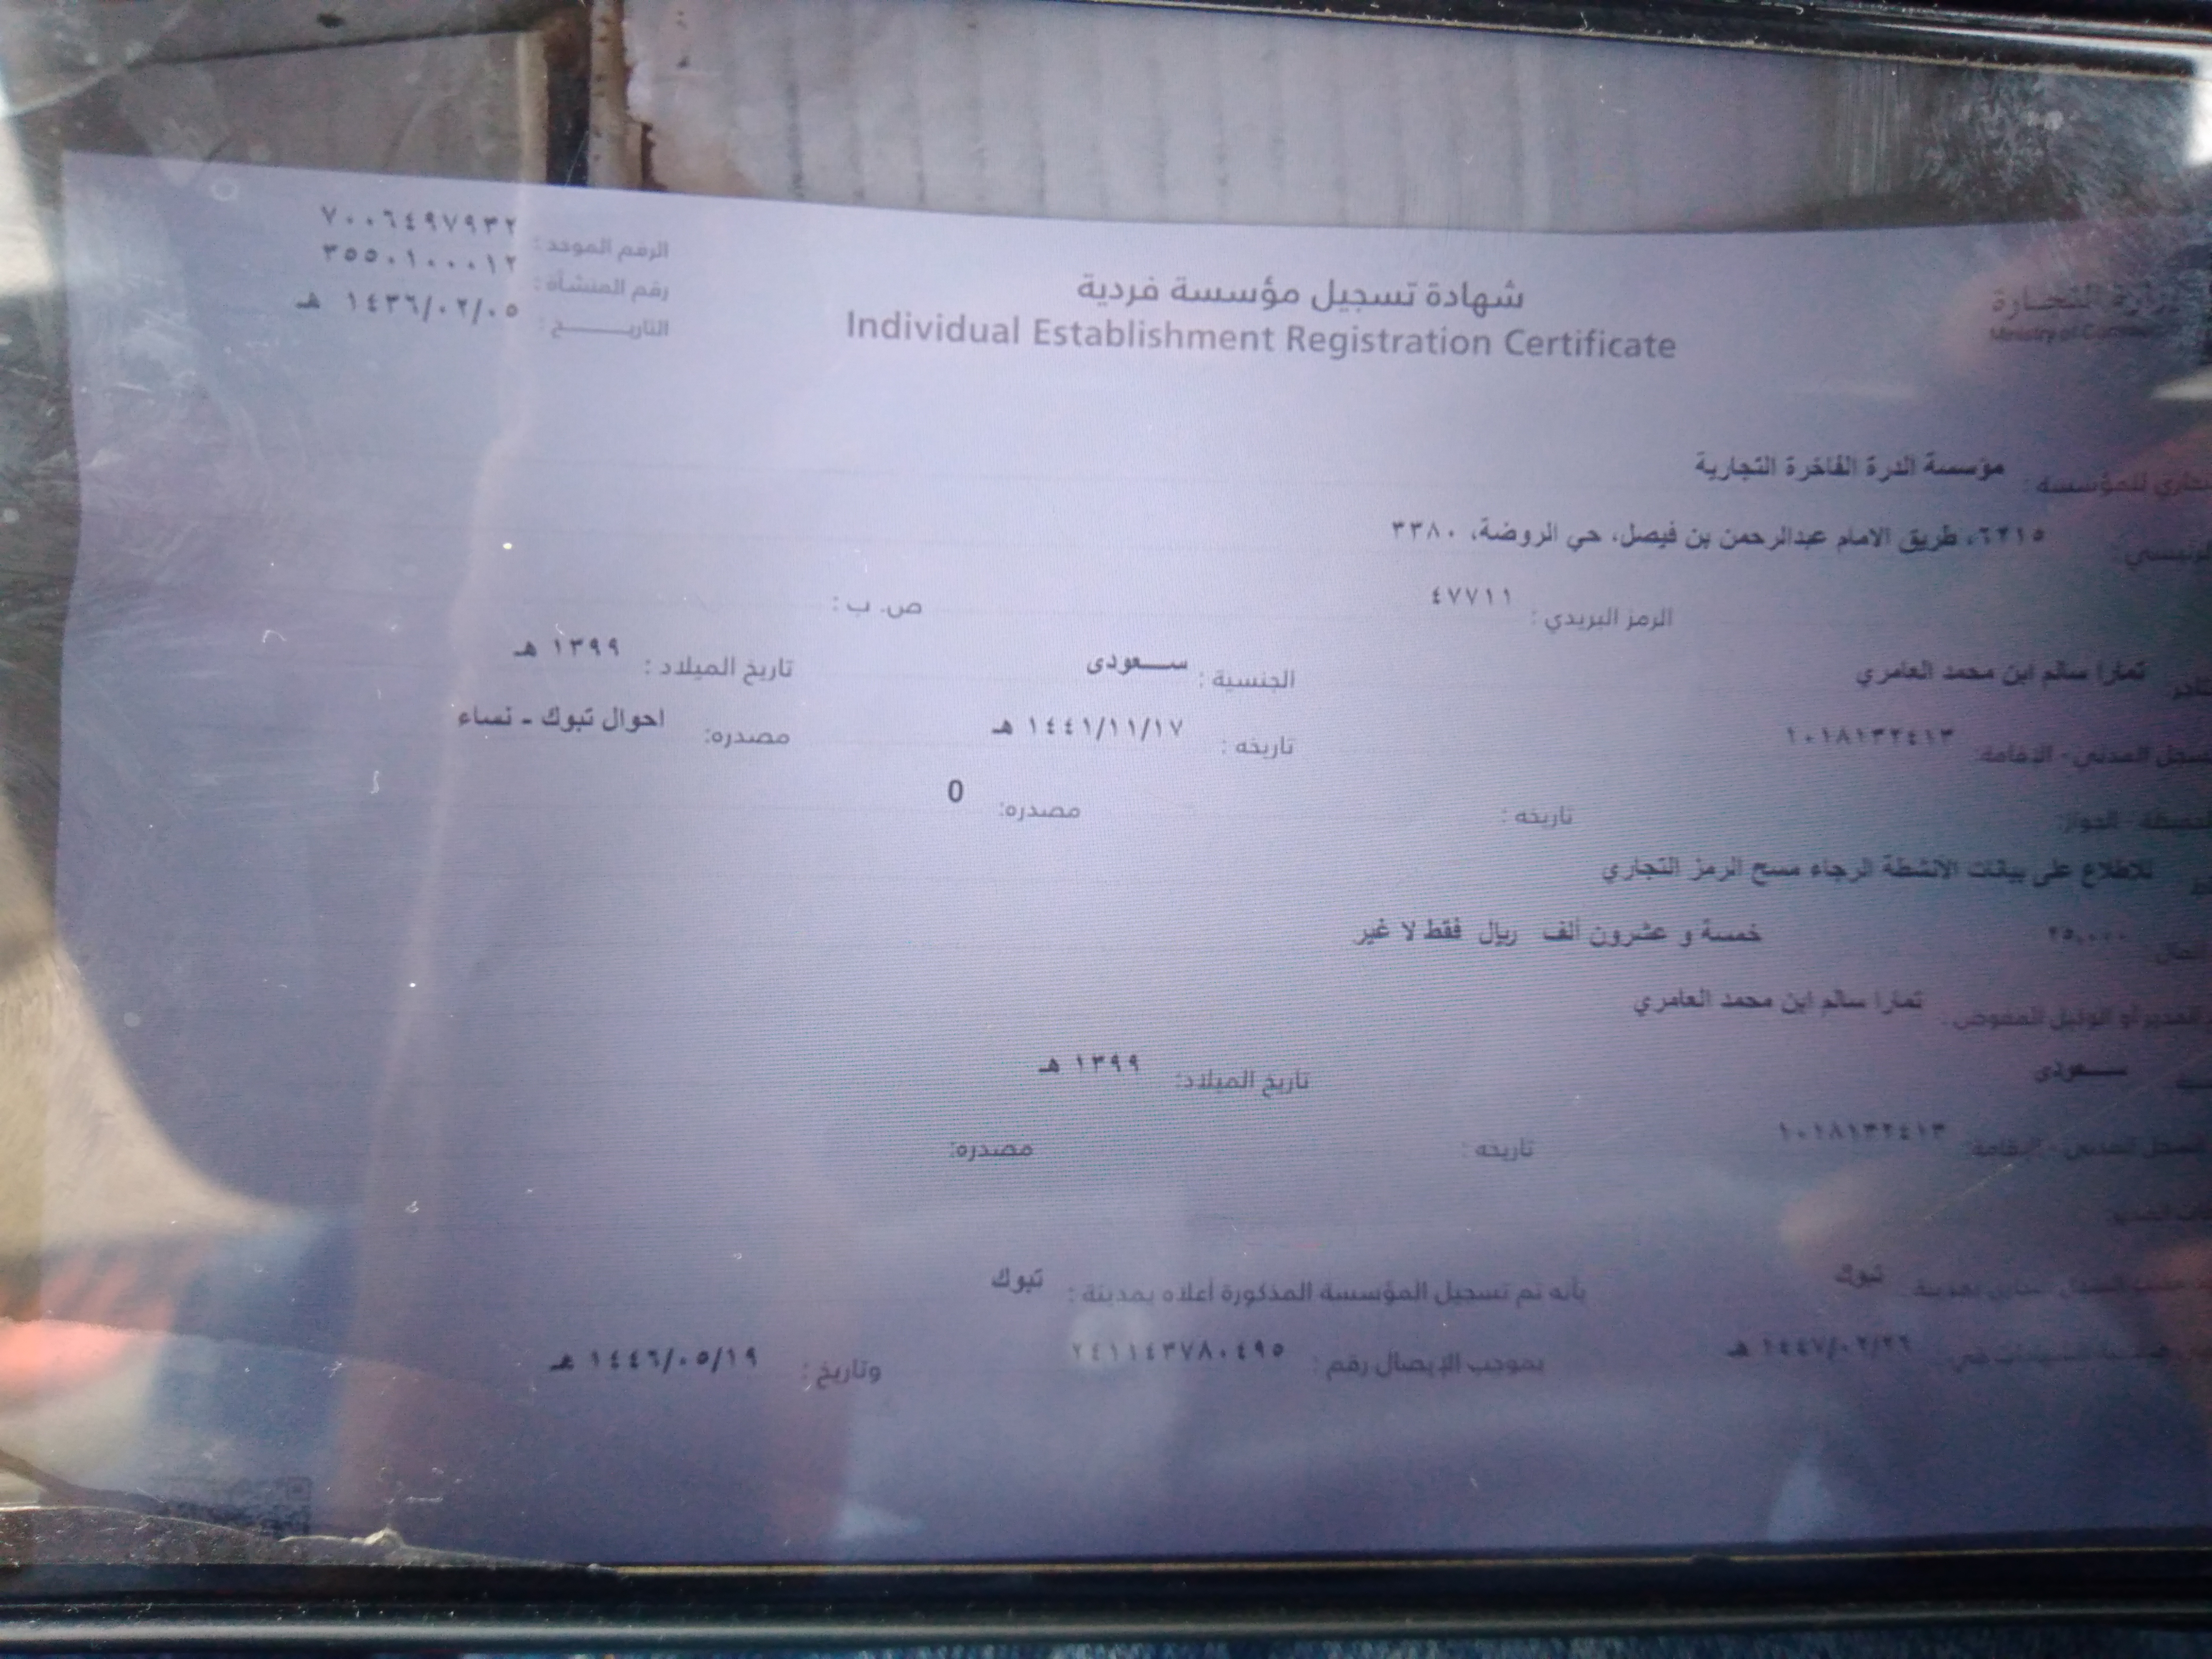 شهادة تسجيل مؤسسة فردية
Individual Establishment Registration Certificate
وزارة التجارة
Ministry of
الرقم الموحد : ٧٠٠٦٤٩٧٩٣٢
رقم المنشأة : ٣٥٥٠١٠٠٠١٢
التاريـــــخ : ١٤٣٦/٠٢/٠٥ هـ
للمؤسسة : مؤسسة الدرة الفاخرة التجارية
٦٢١٥، طريق الامام عبدالرحمن بن فيصل، حي الروضة، ٣٣٨٠
الرمز البريدي : ٤٧٧١١ ص. ب :
تمارا سالم ابن محمد العامري الجنسية : ســعودى تاريخ الميلاد : ١٣٩٩ هـ
المدني - الإقامة: ١٠١٨١٣٢٤١٣ تاريخه : ١٤٤١/١١/١٧ هـ مصدره: احوال تبوك - نساء
تاريخه : مصدره: 0
للاطلاع على بيانات الانشطة الرجاء مسح الرمز التجاري
المال ٢٥,٠٠٠ خمسة و عشرون ألف ريال فقط لا غير
المدير أو الوكيل المفوض : تمارا سالم ابن محمد العامري
ســعودى تاريخ الميلاد: ١٣٩٩ هـ
السجل المدني - الإقامة: ١٠١٨١٣٢٤١٣ تاريخه : مصدره:
تبوك بأنه تم تسجيل المؤسسة المذكورة أعلاه بمدينة : تبوك
١٤٤٧/٠٢/٢٦ هـ بموجب الإيصال رقم : ٢٤١١٤٣٧٨٠٤٩٥ وتاريخ : ١٤٤٦/٠٥/١٩ هـ